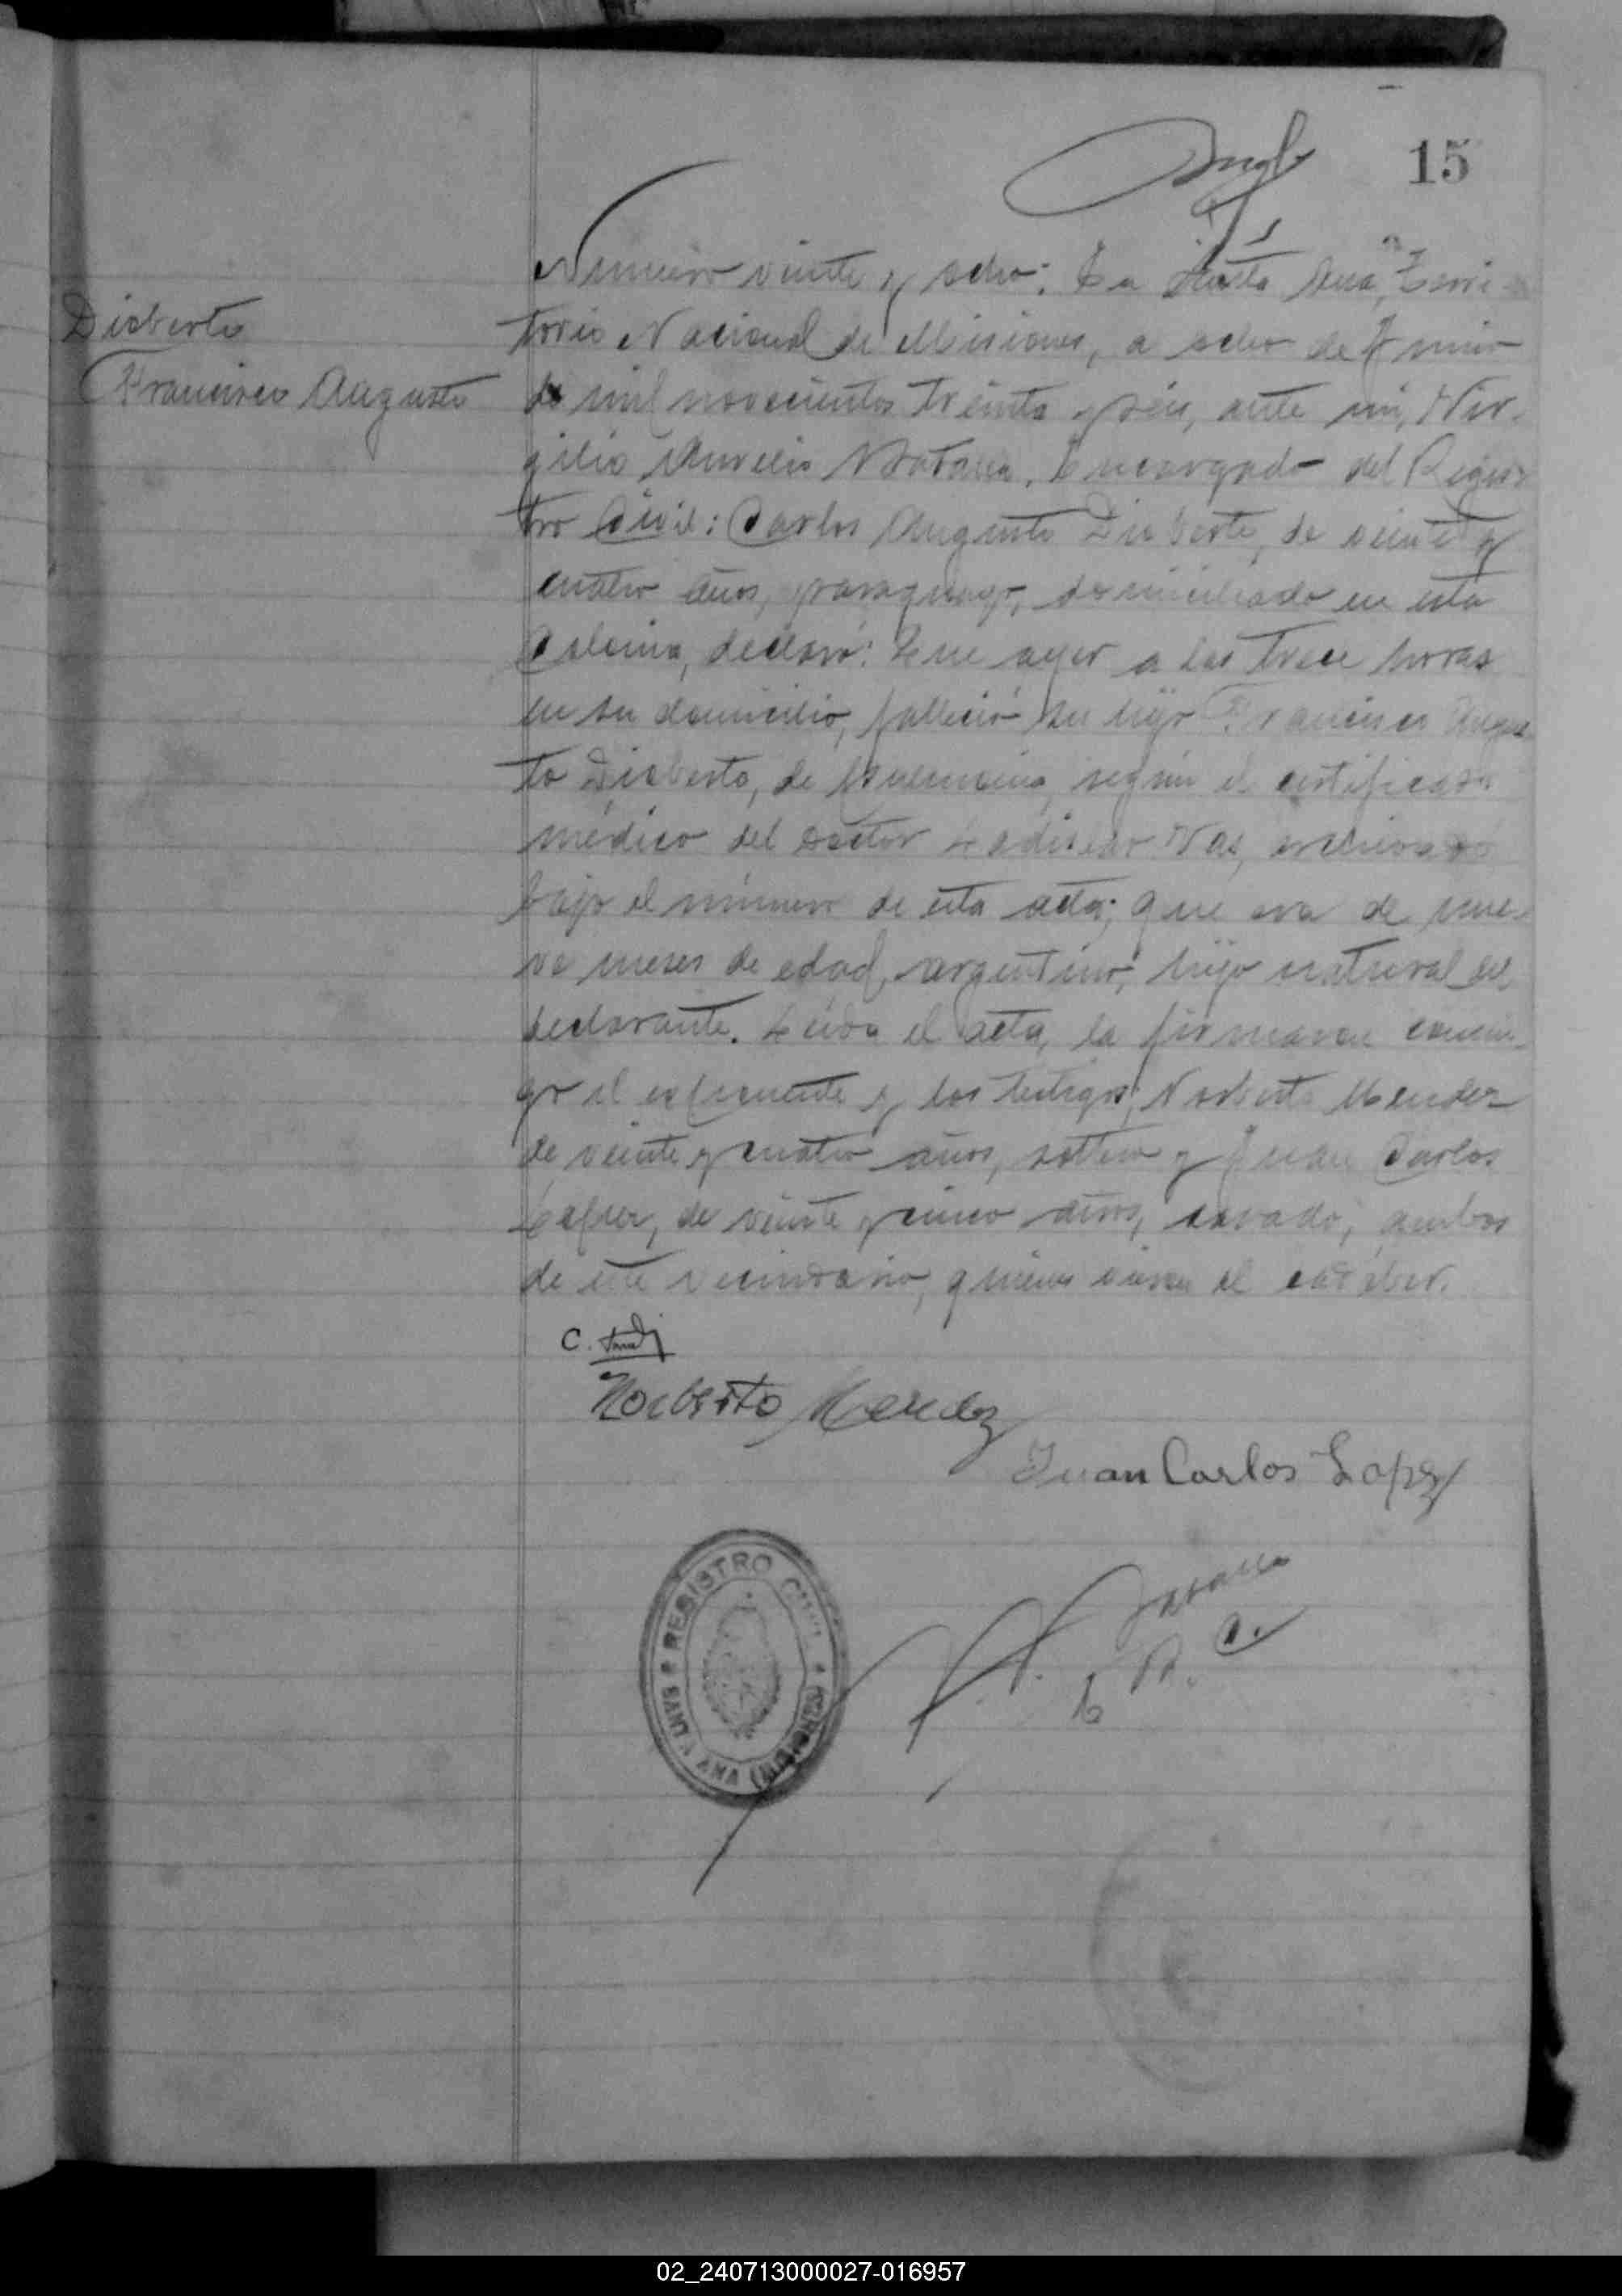 15
Numero veinte y ocho: En Santa Ana, Terri-
torio Nacional de Misiones, a ocho de Junio
Disberto
Francisco Augusto
de mil novecientos treinta y seis, ante mi, Vir-
gilio Aurelio Encargado del Regis-
tro Civil: Carlos Augusto Disberto, de veinte y
cuatro años, paraguayo, domiciliado en esta
Colonia, declaró: Que ayer a las trece horas
en su domicilio, falleció su hijo Francisco Augus-
to Disberto, de según el certificado
médico del doctor Ladislao archivado
bajo el número de esta acta; que era de nue-
ve meses de edad, argentino, hijo natural del
declarante. Leida el acta, la firmaron conmi-
go el exponente y los testigos, Norberto Mendez
de veinte y cuatro años, soltero y Juan Carlos
Lopez, de veinte y cinco años, casado, ambos
de este vecindario, quienes vieron el cadáver.
C.
Norberto Mendez
Juan Carlos Lopez
REGISTRO CIVIL
SANTA ANA (MISIONES)
E. R. C.
02_240713000027-016957